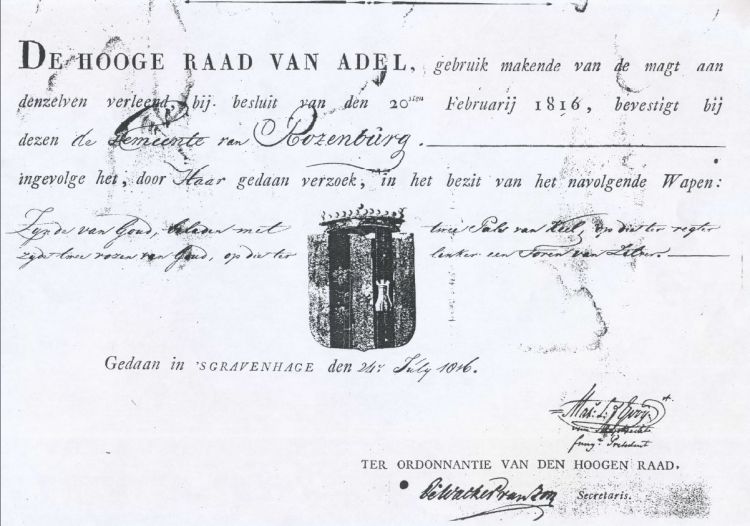 DE HOOGE RAAD VAN ADEL, gebruik makende van de magt aan
denzelven verleend bij besluit van den 20sten Februarij 1816, bevestigt bij
dezen de Gemeente van Rozenburg.
ingevolge het, door Haar gedaan verzoek, in het bezit van het navolgende Wapen:
Zijnde van Goud, beladen met twee Pals van Keel, op die ter regter
zyde twee rozen van Goud, op die ter linker een Toren van Zilver.
Gedaan in 'SGRAVENHAGE den 24n July 1816.
fungd. President
TER ORDONNANTIE VAN DEN HOOGEN RAAD,
Secretaris.